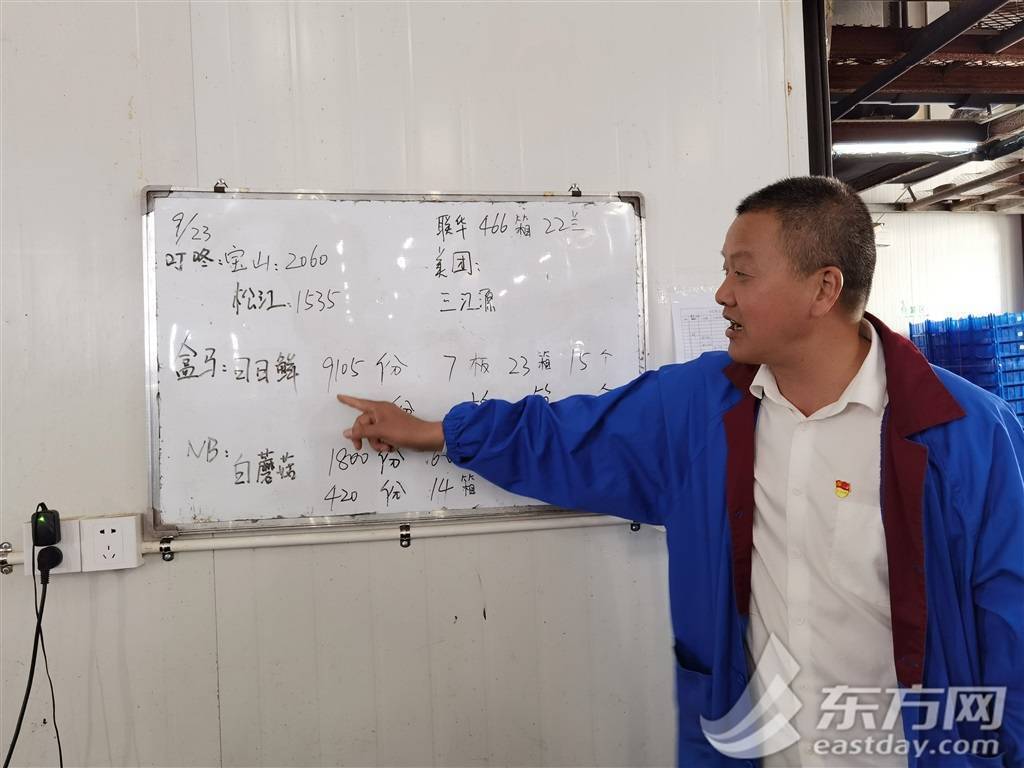 9/23
叮咚：宝山：2060
松江：1535
联华 466箱 22兰
美团：
三江源
盒马：日日鲜 9105份 7板 23箱 15个
份
NB：白蘑菇 1800份
420份 14箱
东方网
eastday.com